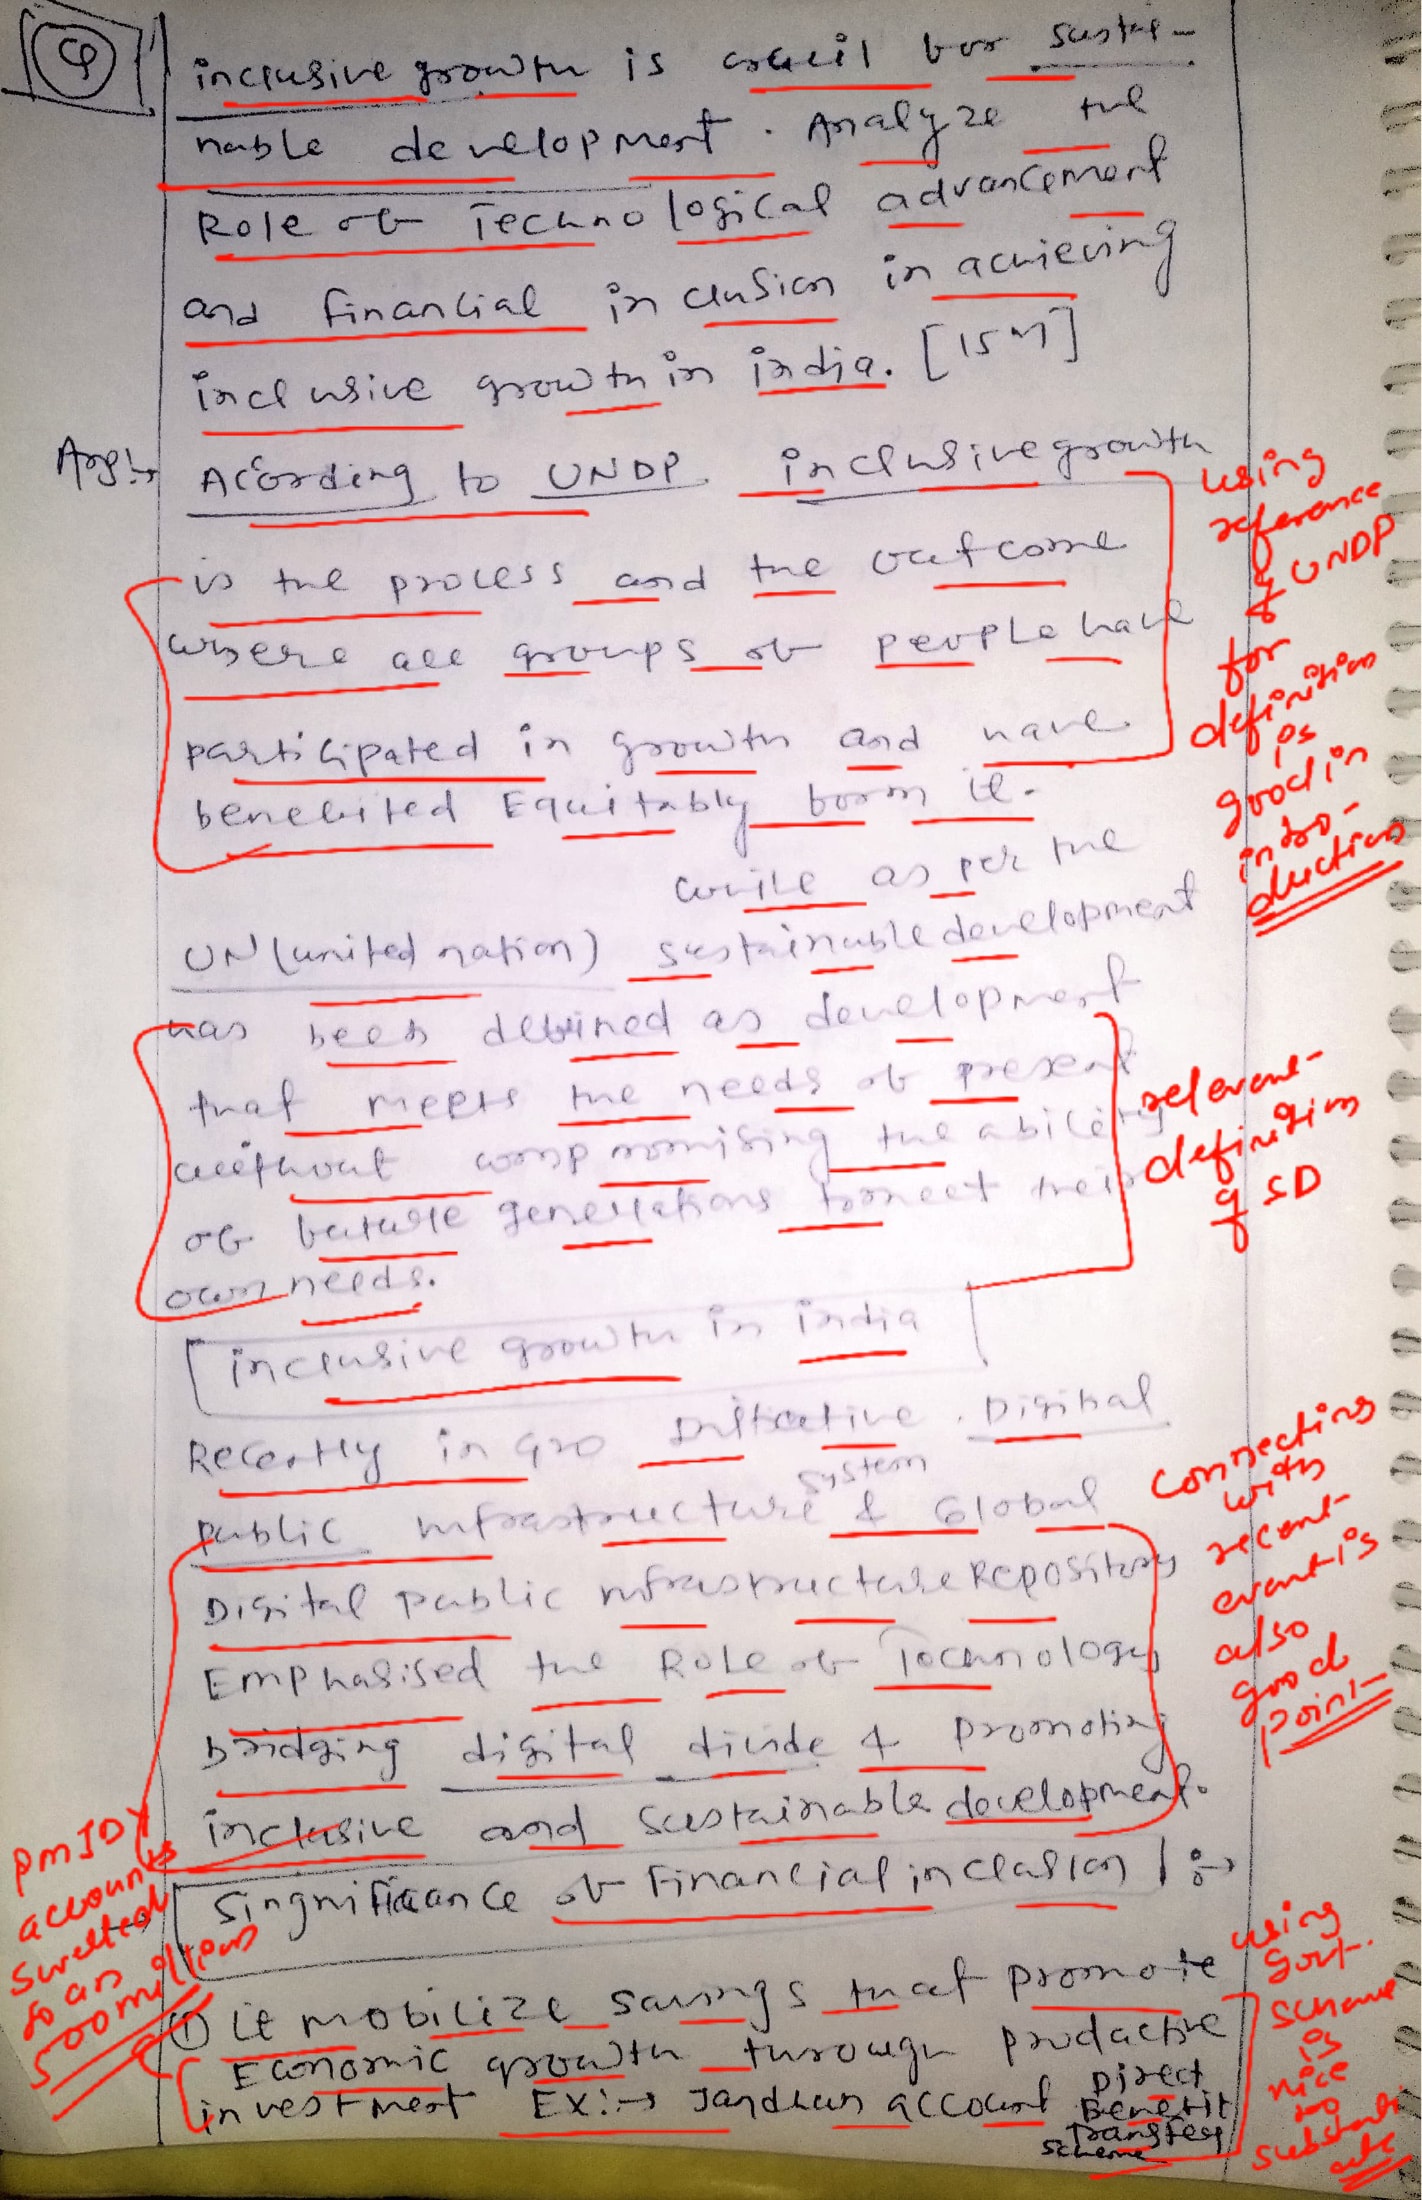 Q
inclusive growth is crucil for sustai-
nable development. Analyze the
Role of Technological advancement
and financial inclusion in achieving
inclusive growth in india. [15M]
Ans:→ According to UNDP inclusive growth
is the process and the outcome
where all groups of people have
participated in growth and have
benefited Equitably from it.
using
reference
of UNDP
for
definition
is
good in
intro-
duction
while as per the
UN (united nation) sustainable development
has been defined as development
that meets the needs of present
without compromising the ability
of future generations to meet their
own needs.
relevant
definition
of SD
inclusive growth in india
Recently in G20 Initiative. Digital
Public infrastructure system & Global
Digital Public infrastructure Repository
Emphasised the Role of Technology
bridging digital divide & promoting
inclusive and sustainable development.
connecting
with
recent
event is
also
good
point
Singnificance of Financial inclusion :→
PMJDY
accounts
swelled
to an
500 million
① it mobilize savings that promote
Economic growth through productive
investment EX:→ Jandhan account Direct
Benefit
Transfer
scheme
using
govt.
scheme
is
nice
too